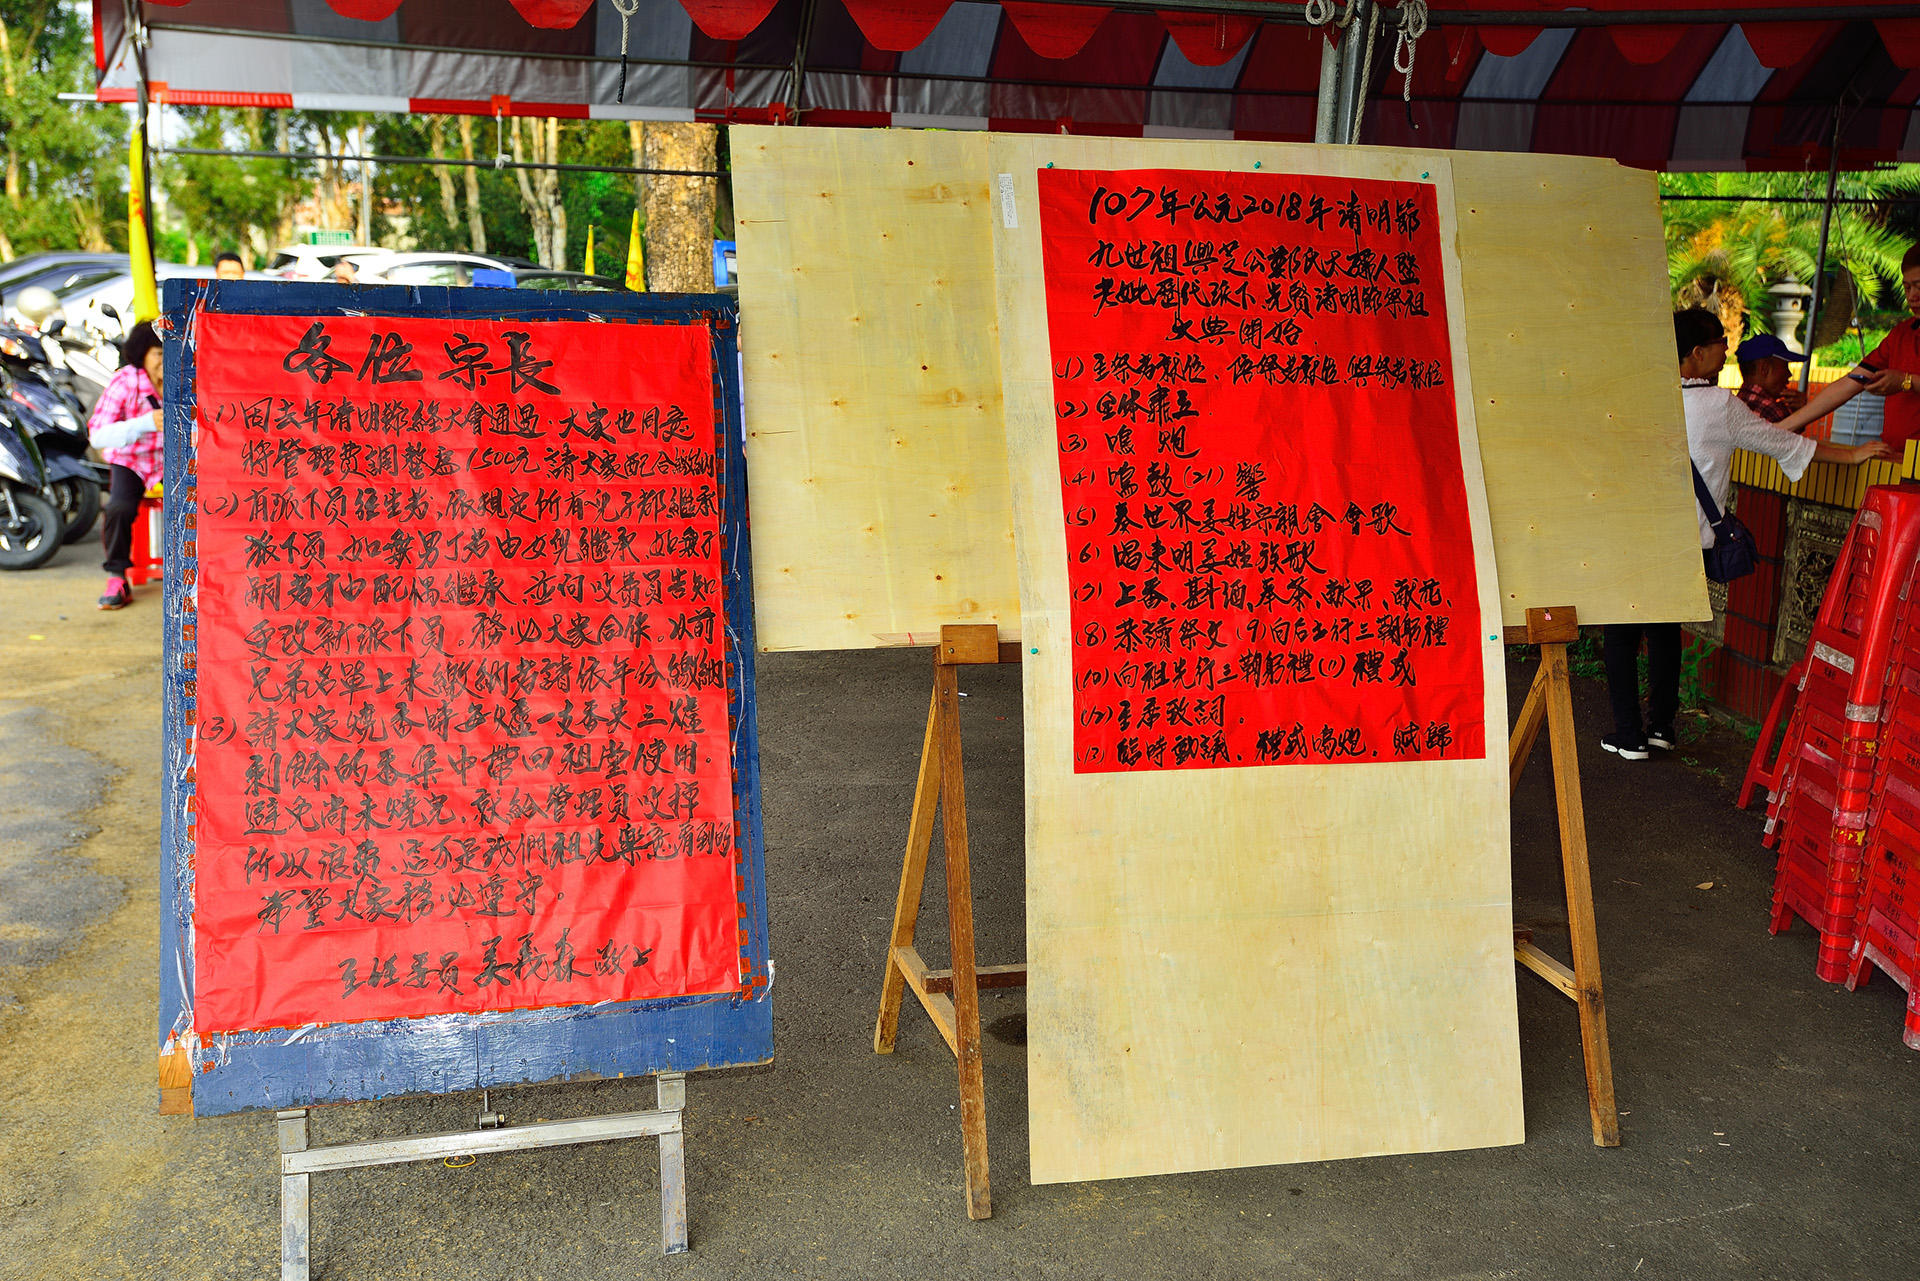 各位宗長
(1)因去年清明節經大會通過.大家也同意
將管理費調整為1500元請大家配合繳納
(2)有派下員往生者、依規定所有兒子都繼承
派下員.如無男丁者由女兒繼承.如無子
嗣者才由配偶繼承.並向收費員告知
更改新派下員。務必大家合作。以前
兄弟名單上未繳納者請依年份繳納
(3)請大家燒香時每爐一支香共三爐
剩餘的香集中帶回祖堂使用。
避免尚未燒完.就給管理員收掉
所以浪費.這不是我們祖先樂意看到的
希望大家務必遵守。
主任委員姜義森敬上
107年公元2018年清明節
九世祖興芝公鄭氏太孺人暨
考妣歷代派下先賢清明節祭祖
大典開始
(1)主祭者就位、陪祭者就位.與祭者就位
(2)全体肅立
(3)鳴炮
(4)鳴鼓(21)響
(5)奏世界姜姓宗親會會歌
(6)唱東明姜姓族歌
(7)上香、斟酒、奉茶、献果、献花、
(8)恭讀祭文(9)向后土行三鞠躬禮
(10)向祖先行三鞠躬禮(11)禮成
(12)主席致詞。
(13)臨時動議、禮成鳴炮.賦歸